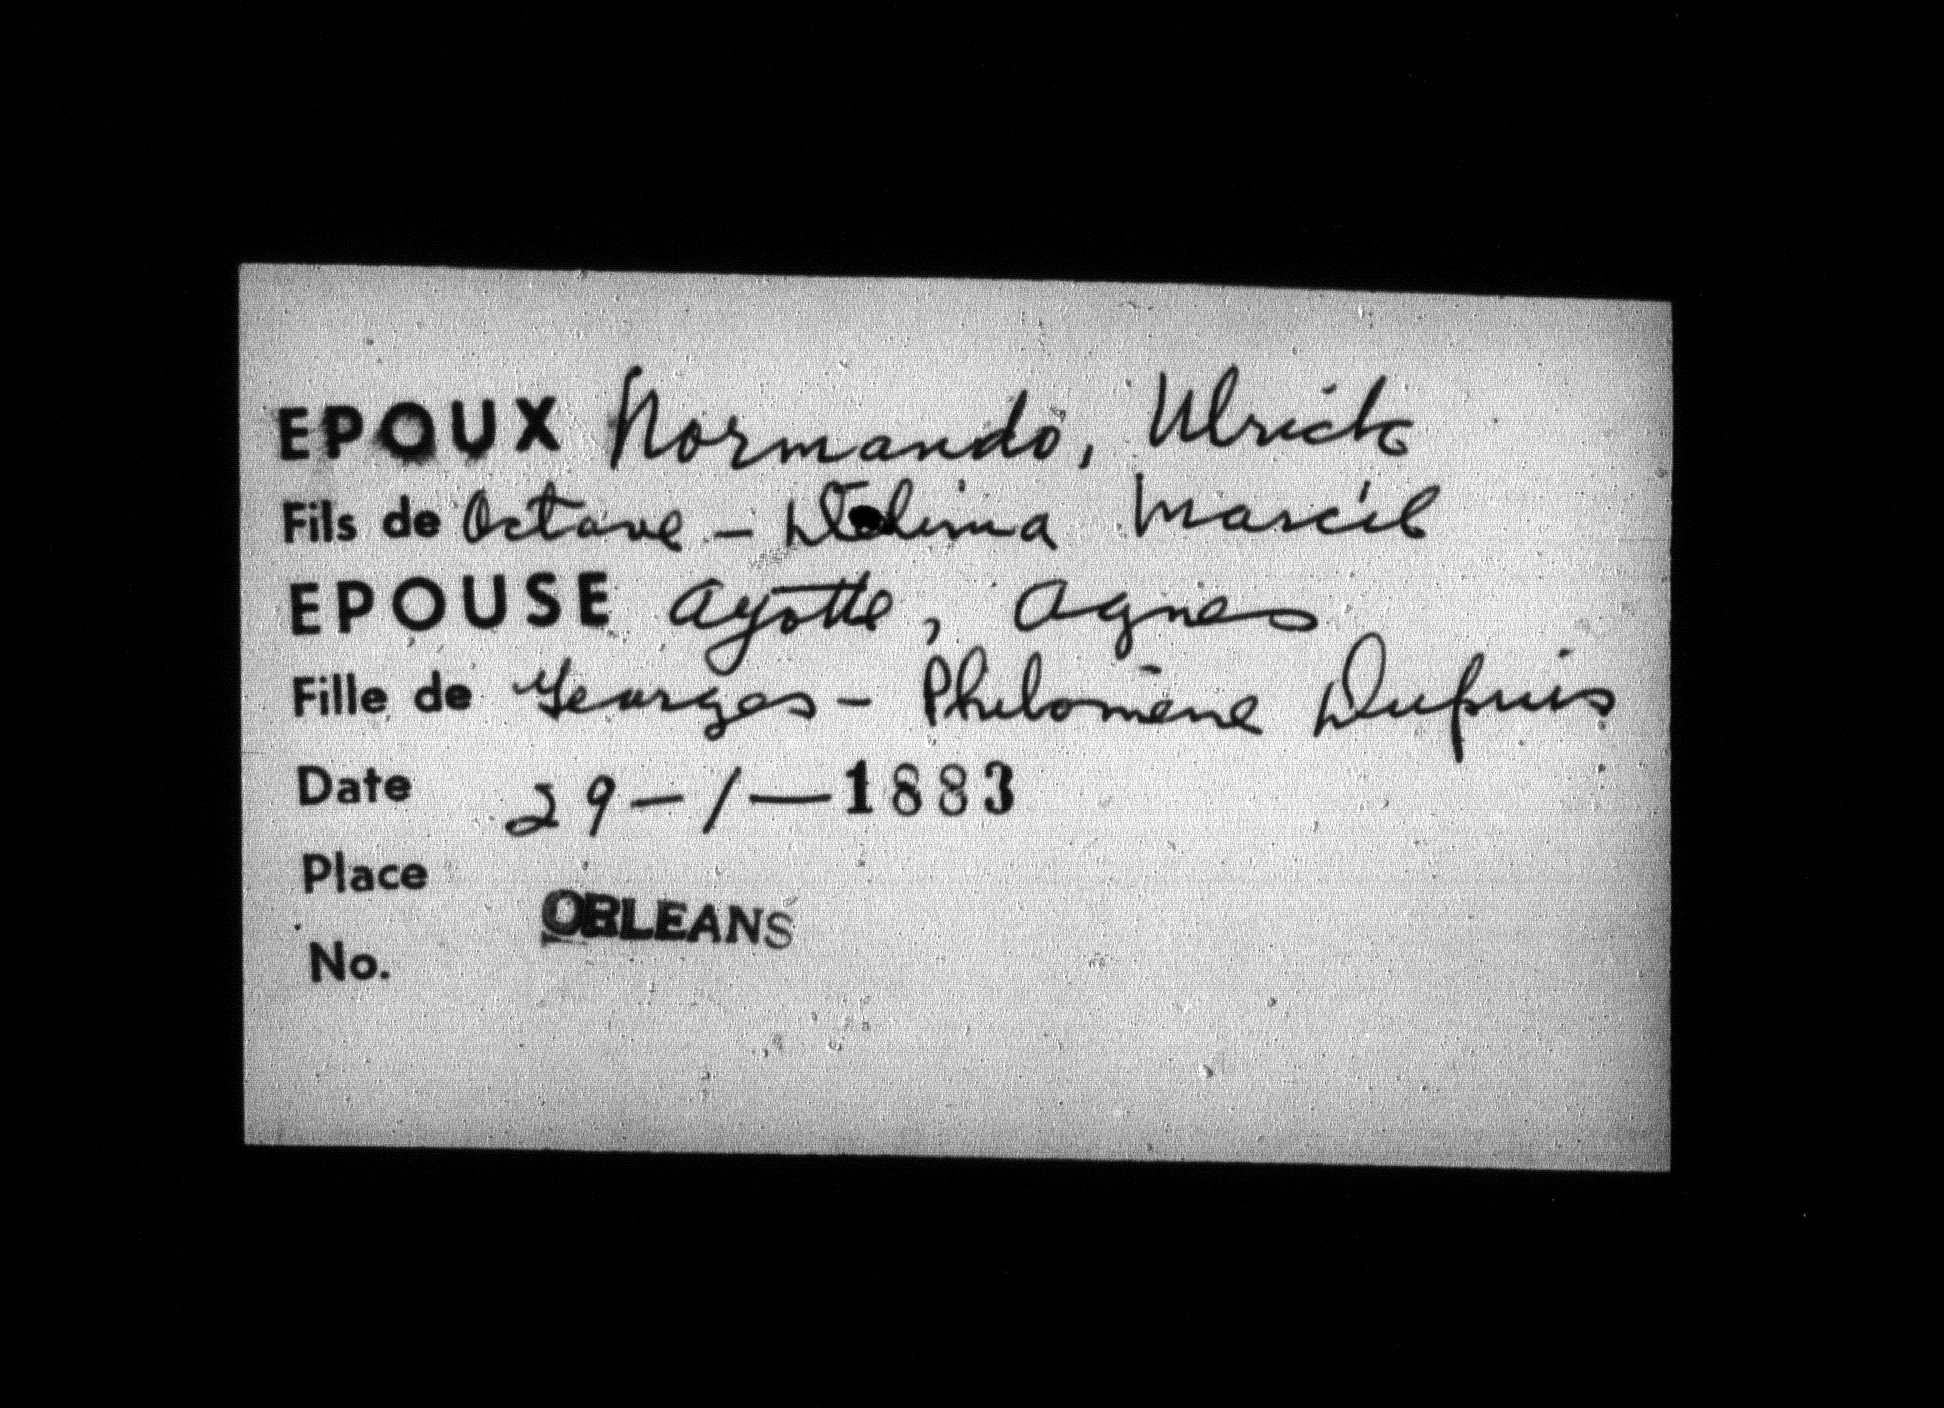 EPOUX Normando, Ulrick
Fils de Octave – Delima Marcil
EPOUSE Ayotte, Agnes
Fille de Georges – Philomène Dupuis
Date 29 – 1 – 1883
Place ORLEANS
No.